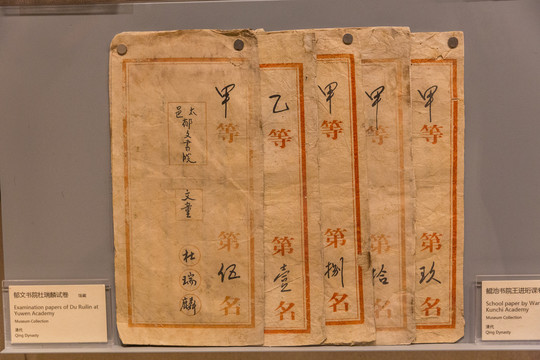 甲等 第伍名
太邑
郁文書院
文童
杜瑞麟
乙等 第壹名
甲等 第捌名
甲等 第拾名
甲等 第玖名
郁文书院杜瑞麟试卷
Examination papers of Du Ruilin at
Yuwen Academy
Museum Collection
清代
Qing Dynasty
鲲池书院王班珩课
School paper by Wan
Kunchi Academy
Museum Collection
清代
Qing Dynasty